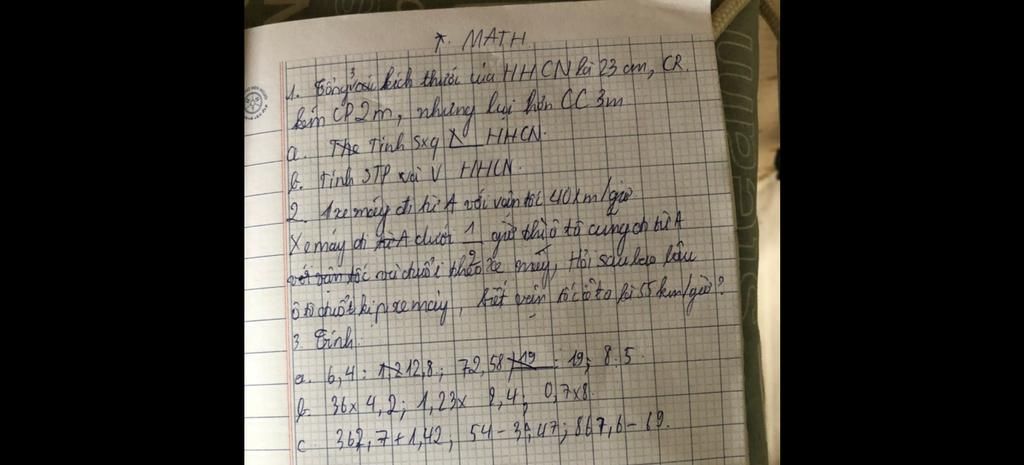 * MATH
1. Tổng 3 kích thước của HHCN là 23 cm, CR
kém CD 2m, nhưng lại hơn CC 3m
a. The Tính Sxq HHCN.
b. Tính STP và V HHCN.
2. 1 xe máy đi từ A với vận tốc 40 km/giờ
Xe máy đi từ A được 1/2 giờ thì ô tô cũng đi từ A
với vận tốc và đuổi theo xe máy, Hỏi sau bao lâu
ô tô đuổi kịp xe máy, biết vận tốc ô tô là 55 km/giờ?
3. Tính
a. 6,4 : 12,8; 72,58 : 19; 8:5.
b. 36 x 4,2; 1,23 x 2,4; 0,7 x 8.
c. 362,7 + 1,42; 54 - 3,47; 867,6 - 69.